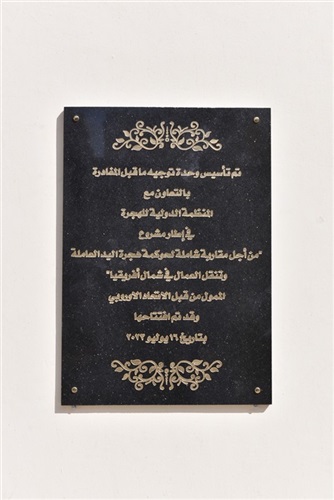 تم تأسيس وحدة توجيه ما قبل المغادرة
بالتعاون مع
المنظمة الدولية للهجرة
في إطار مشروع
"من أجل مقاربة شاملة لحوكمة هجرة اليد العاملة
وتنقل العمال في شمال أفريقيا"
الممول من قبل الاتحاد الأوروبي
وقد تم افتتاحها
بتاريخ ١٦ يوليو ٢٠٢٣